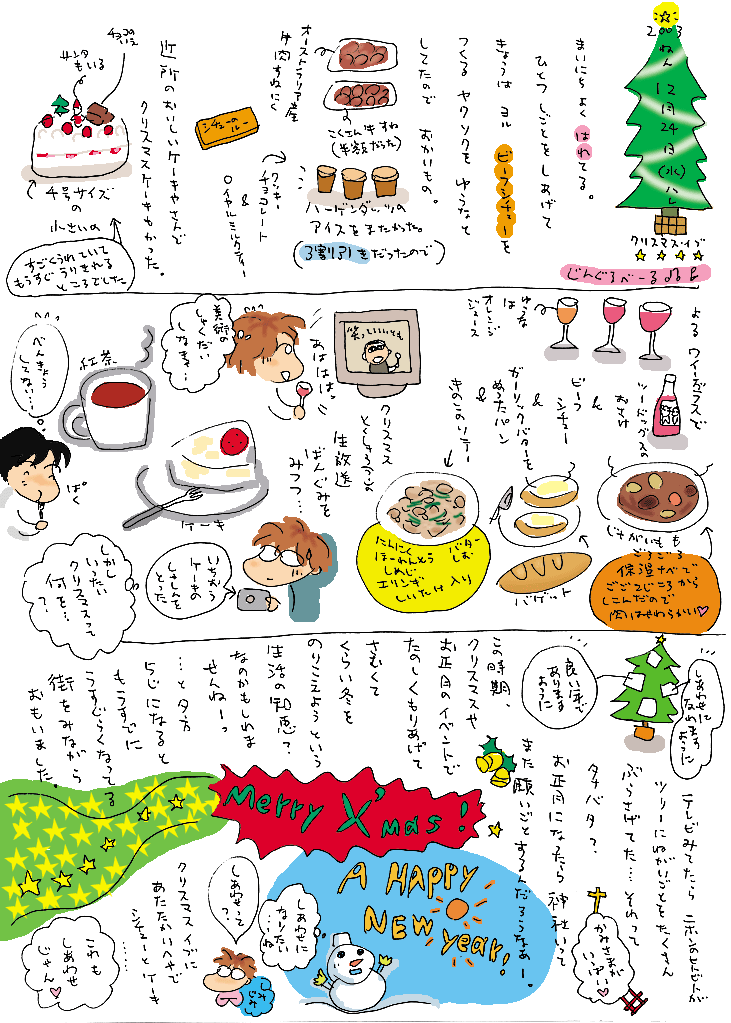 2003
ねん
12
月
24
日
(水)
ハレ
クリスマスイブ
じんぐるべーる
まいにち よく はれてる。
ひとつ しごとを しあげて
きょうは ヨル ビーフシチューを
つくる ヤクソクを ゆうなと
してたので おかいもの。
オーストラリア産
牛肉すねにく
こくさん牛すね
(半額だった)
シチューのルー
ハーゲンダッツの
アイスを またかった。
(3割引きだったので)
クッキー
チョコレート
&
ロイヤルミルクティー
近所のおいしいケーキやさんで
クリスマスケーキもかった。
チョコの
いえ
サンタ
もいる
4号サイズ
の
小さいの
すごくうれていて
もうすぐうりきれる
ところでした
よる ワイングラスで
ツードッグスの
おさけ
ゆうな
は
オレンジ
ジュース
ビーフ
シチュー
&
ガーリックバターを
ぬったパン
&
きのこのソテー
じゃがいもも
ごろごろ
保温ナベで
ごごこじごろから
しこんだので
肉はやわらかい♡
バゲット
にんにく
ほーれんそう
しめじ
エリンギ
しいたけ入り
バター
しお
クリスマス
とくしゅうの
生放送
ばんぐみを
みつつ…
笑っていいとも
あははは
美術の
しゅくだい
なま…
紅茶
べんきょう
してない…
ぱく
ケーキ
いちおう
ケーキの
しゃしんを
とった
しかし
いったい
クリスマスって
何を…
?
しあわせに
なれます
ように
良い年で
あります
ように
テレビみてたら ニホンのヒトビトが
ツリーにねがいごとをたくさん
ぶらさげてた…それって
タナバタ?
お正月になったら 神社いって
また 願いごとするんだろうなあー。
かみさまが
いっぱい♡
この時期、
クリスマスや
お正月のイベントで
たのしくもりあげて
さむくて
くらい冬を
のりこえようという
生活の知恵?
なのかもしれま
せんねーっ
…と夕方
5じになると
もうすでに
うすぐらくなってる
街をみながら
おもいました。
Merry X'mas!
A HAPPY
NEW year!
しあわせに
なりたい
…ね
しあわせって
?
しみじみ
クリスマスイブに
あたたかいヘヤで
シチューとケーキ
……
これも
しあわせ
じゃん♡